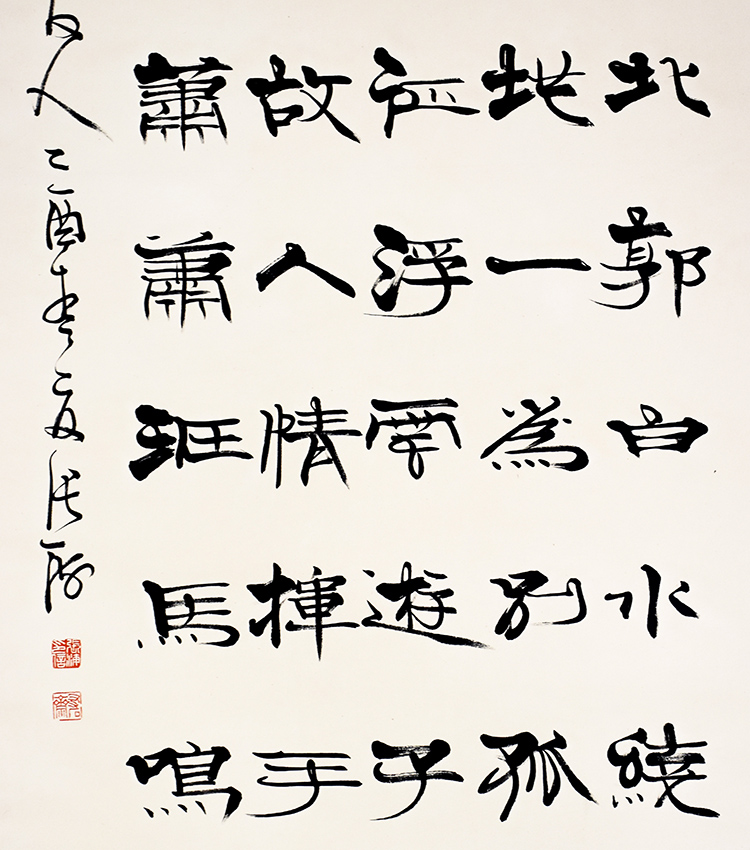 北郭白水繞
地一為別孤
征浮雲遊子
故人情揮手
蕭蕭班馬鳴
友人 乙酉春 張